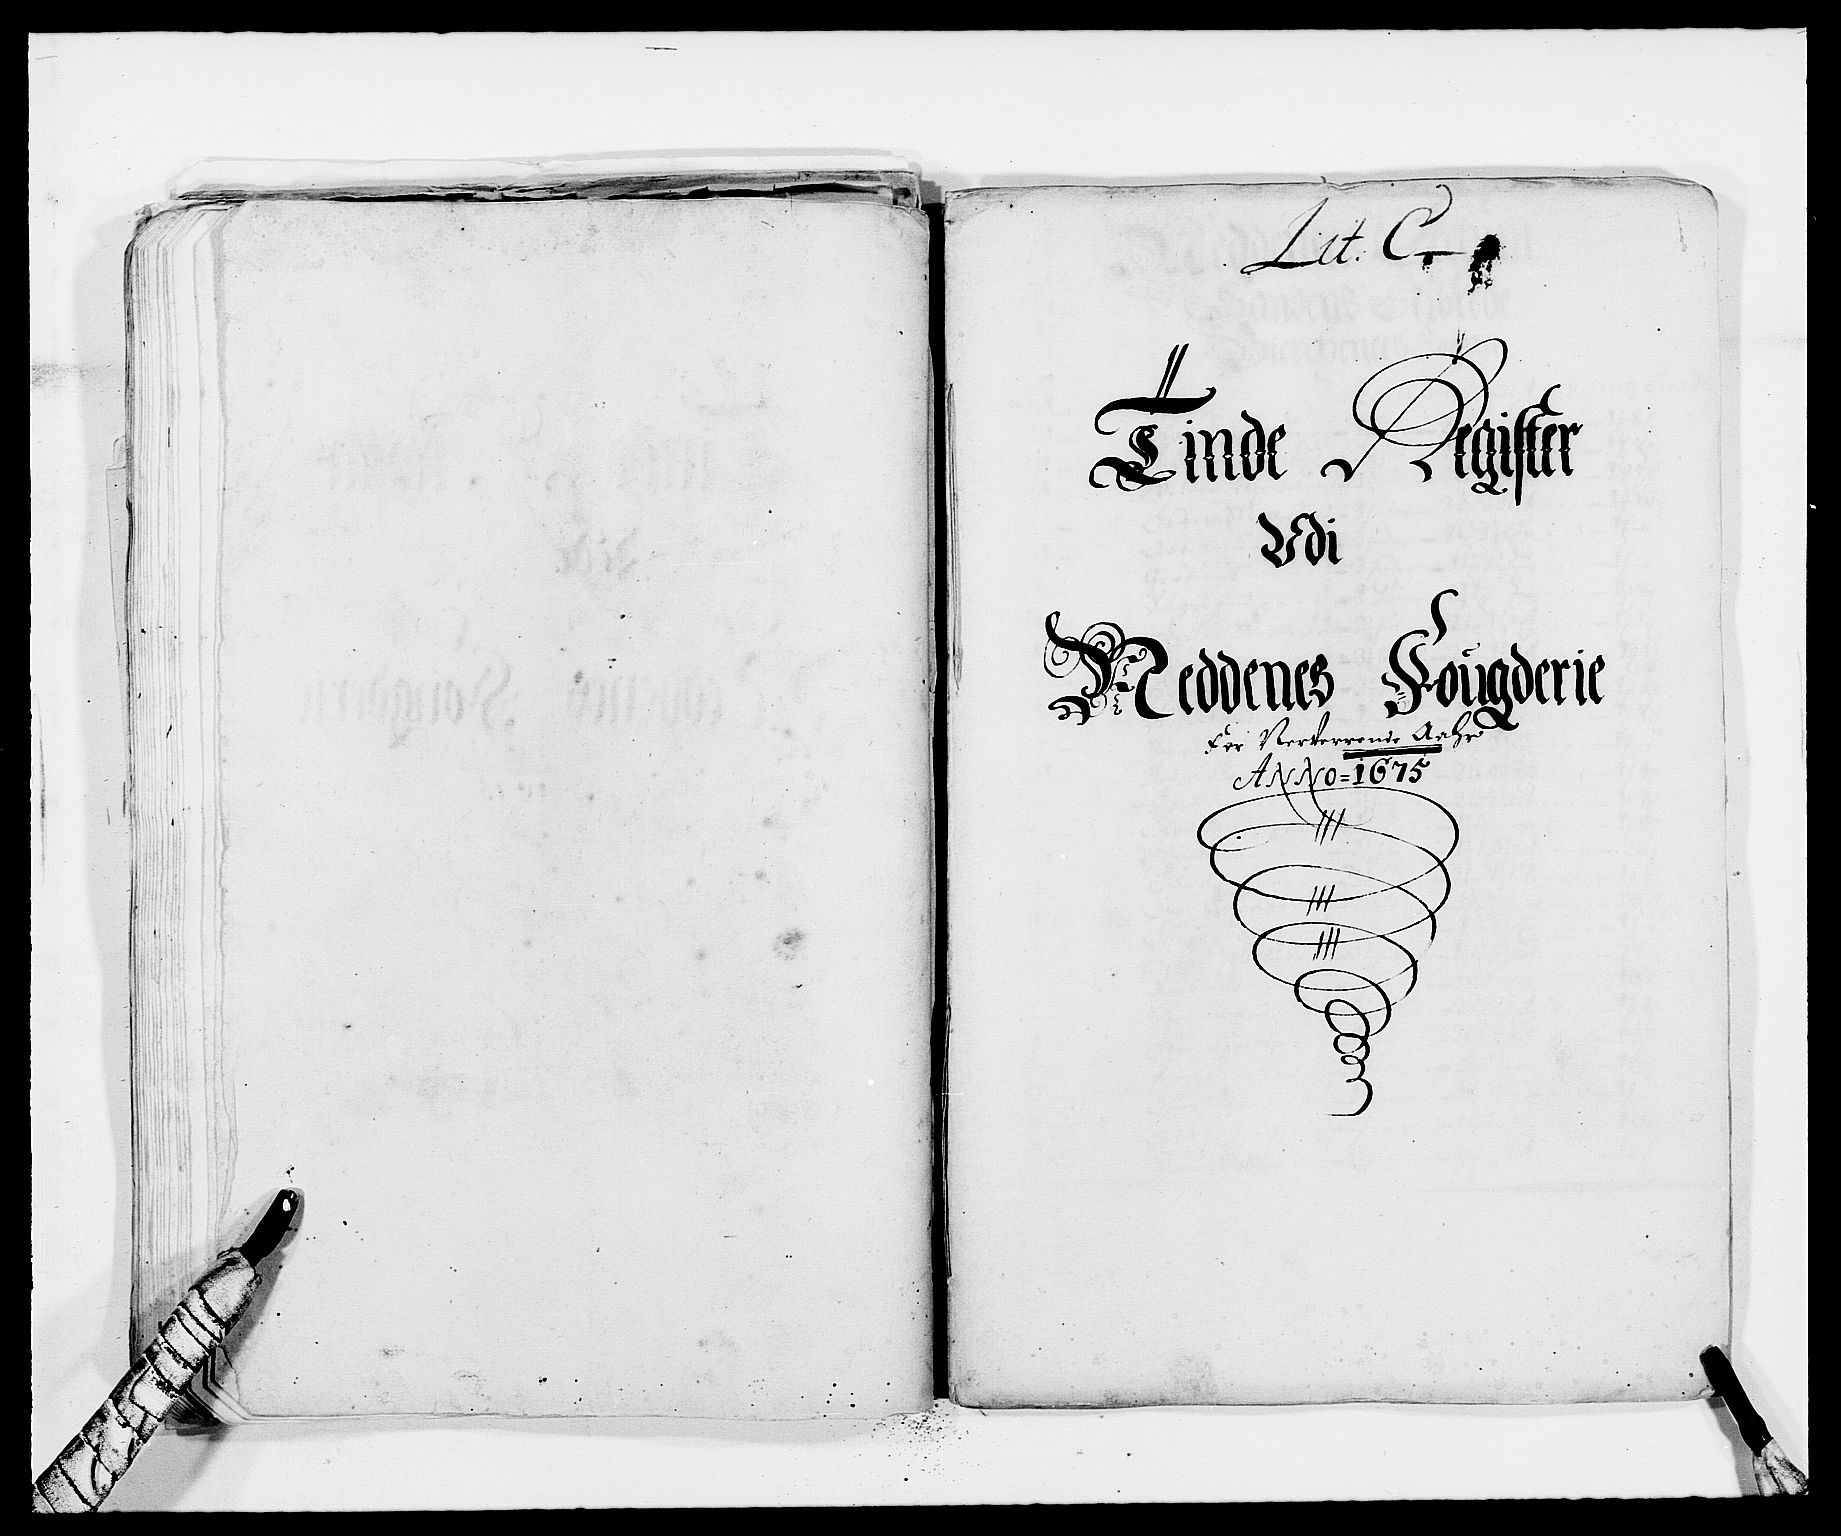 Lit. C.
Tinde Register
Vdi
Neddenes Fougderie
for Nerverrende Aahr
ANNO=1675